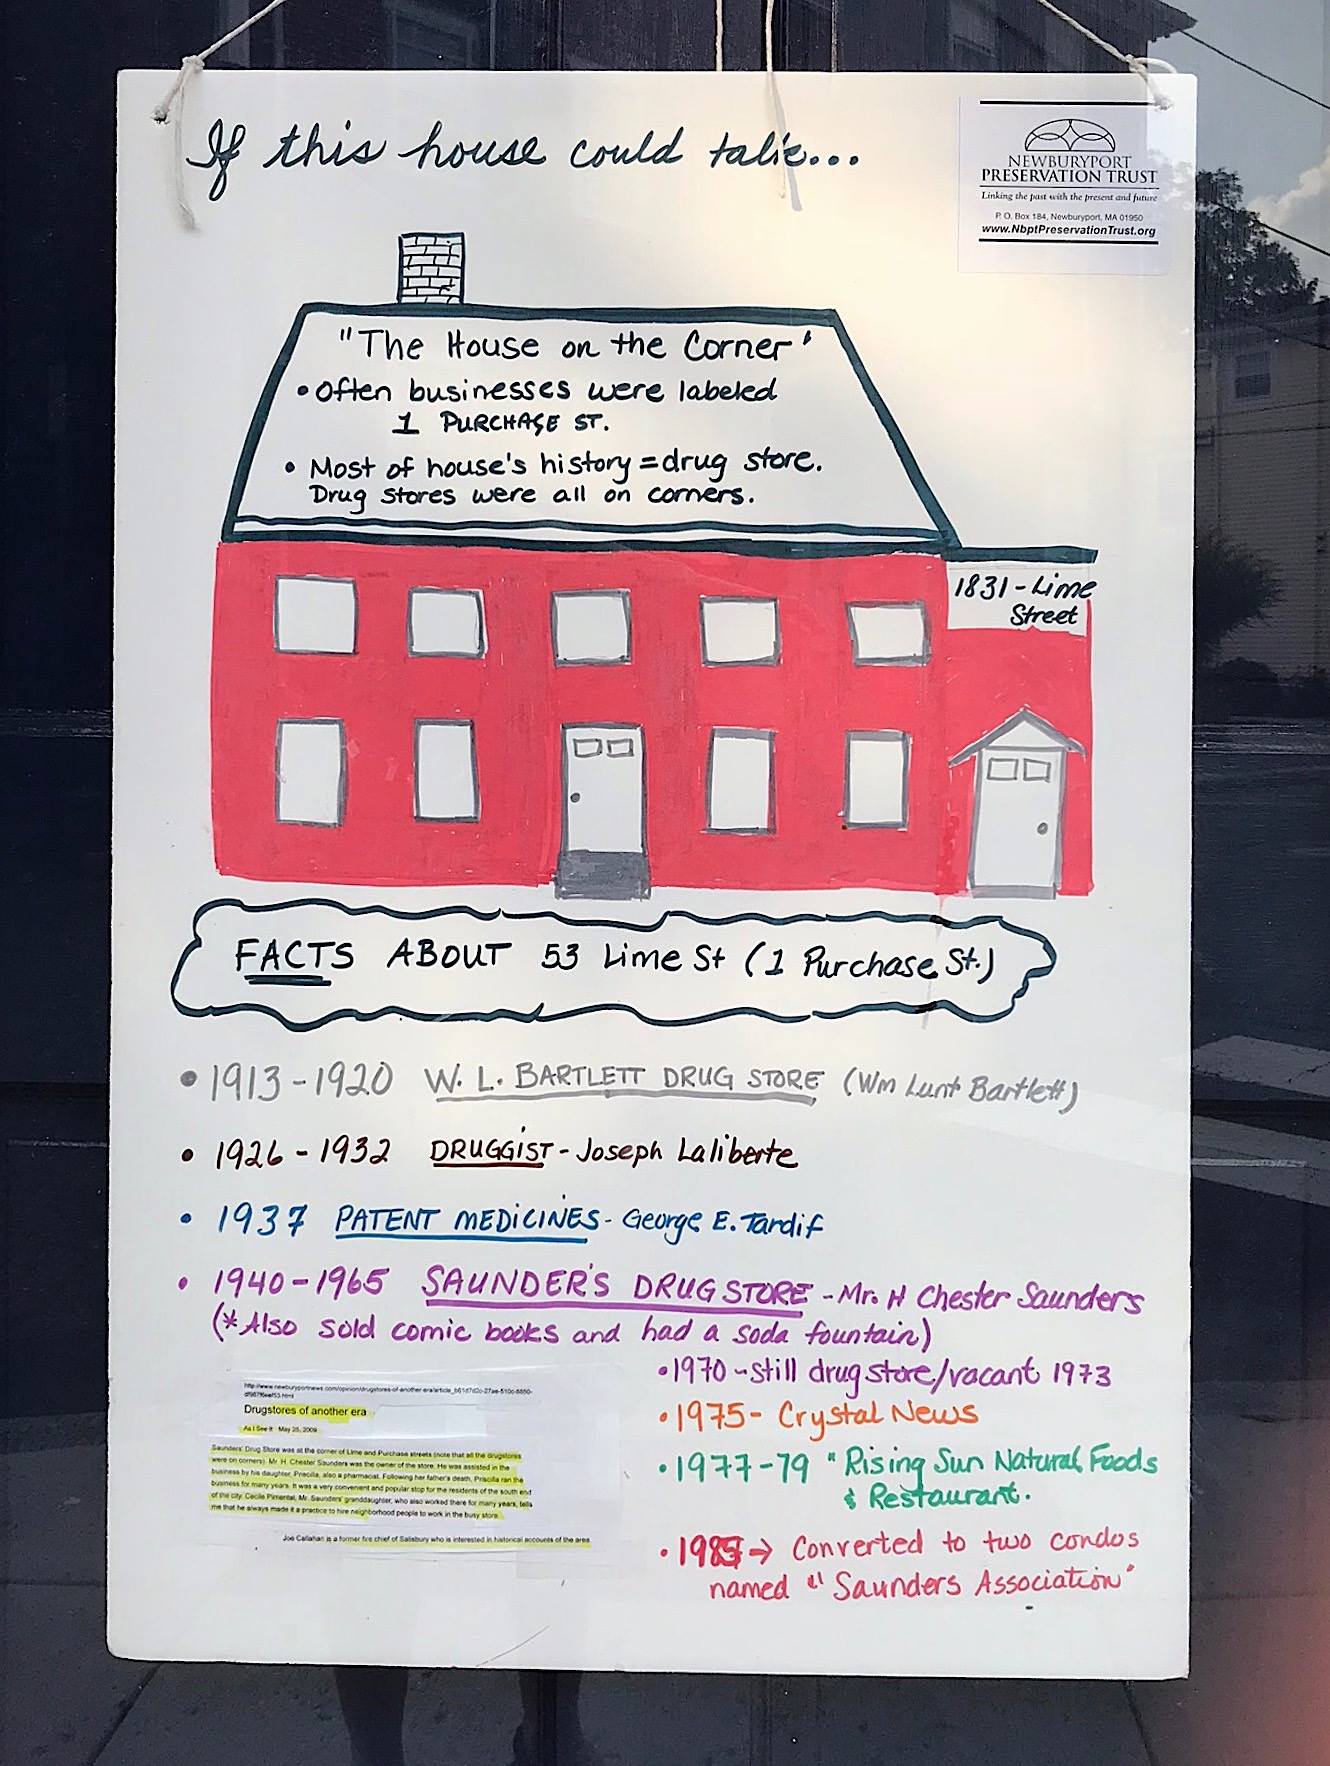 If this house could talk...
NEWBURYPORT
PRESERVATION TRUST
Linking the past with the present and future
P. O. Box 184, Newburyport, MA 01950
www.NbptPreservationTrust.org
"The House on the Corner"
• Often businesses were labeled
1 PURCHASE ST.
• Most of house's history = drug store.
Drug stores were all on corners.
1831 - Lime
Street
FACTS ABOUT 53 Lime St (1 Purchase St.)
• 1913 - 1920 W. L. BARTLETT DRUG STORE (Wm Lunt Bartlett)
• 1926 - 1932 DRUGGIST - Joseph Laliberte
• 1937 PATENT MEDICINES - George E. Tardif
• 1940 - 1965 SAUNDER'S DRUG STORE - Mr. H Chester Saunders
(*Also sold comic books and had a soda fountain)
• 1970 - Still drug store/vacant 1973
• 1975 - Crystal News
• 1977 - 79 "Rising Sun Natural Foods
& Restaurant.
• 1985 → Converted to two condos
named "Saunders Association"
Drugstores of another era
As I See It May 25, 2009
Saunders' Drug Store was at the corner of Lime and Purchase streets (note that all the drugstores
were on corners). Mr. H. Chester Saunders was the owner of the store. He was assisted in the
business by his daughter, Priscilla, also a pharmacist. Following her father's death, Priscilla ran the
business for many years. It was a very convenient and popular stop for the residents of the south end
of the city. Cecile Pimental, Mr. Saunders' granddaughter, who also worked there for many years, tells
me that he always made it a practice to hire neighborhood people to work in the busy store.
Joe Callahan is a former fire chief of Salisbury who is interested in historical accounts of the area.